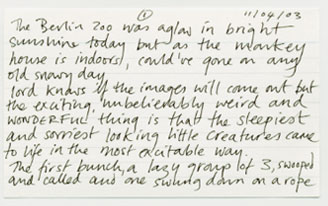 ① 11/04/03
The Berlin zoo was aglow in bright
sunshine today but as the monkey
house is indoors, could've gone on any
old snowy day.
lord knows if the images will come out but
the exciting, unbelievably weird and
WONDERFUL thing is that the sleepiest
and sorriest looking little creatures came
to life in the most excitable way.
The first bunch, a lazy group of 3, swooped
and called and one swung down on a rope